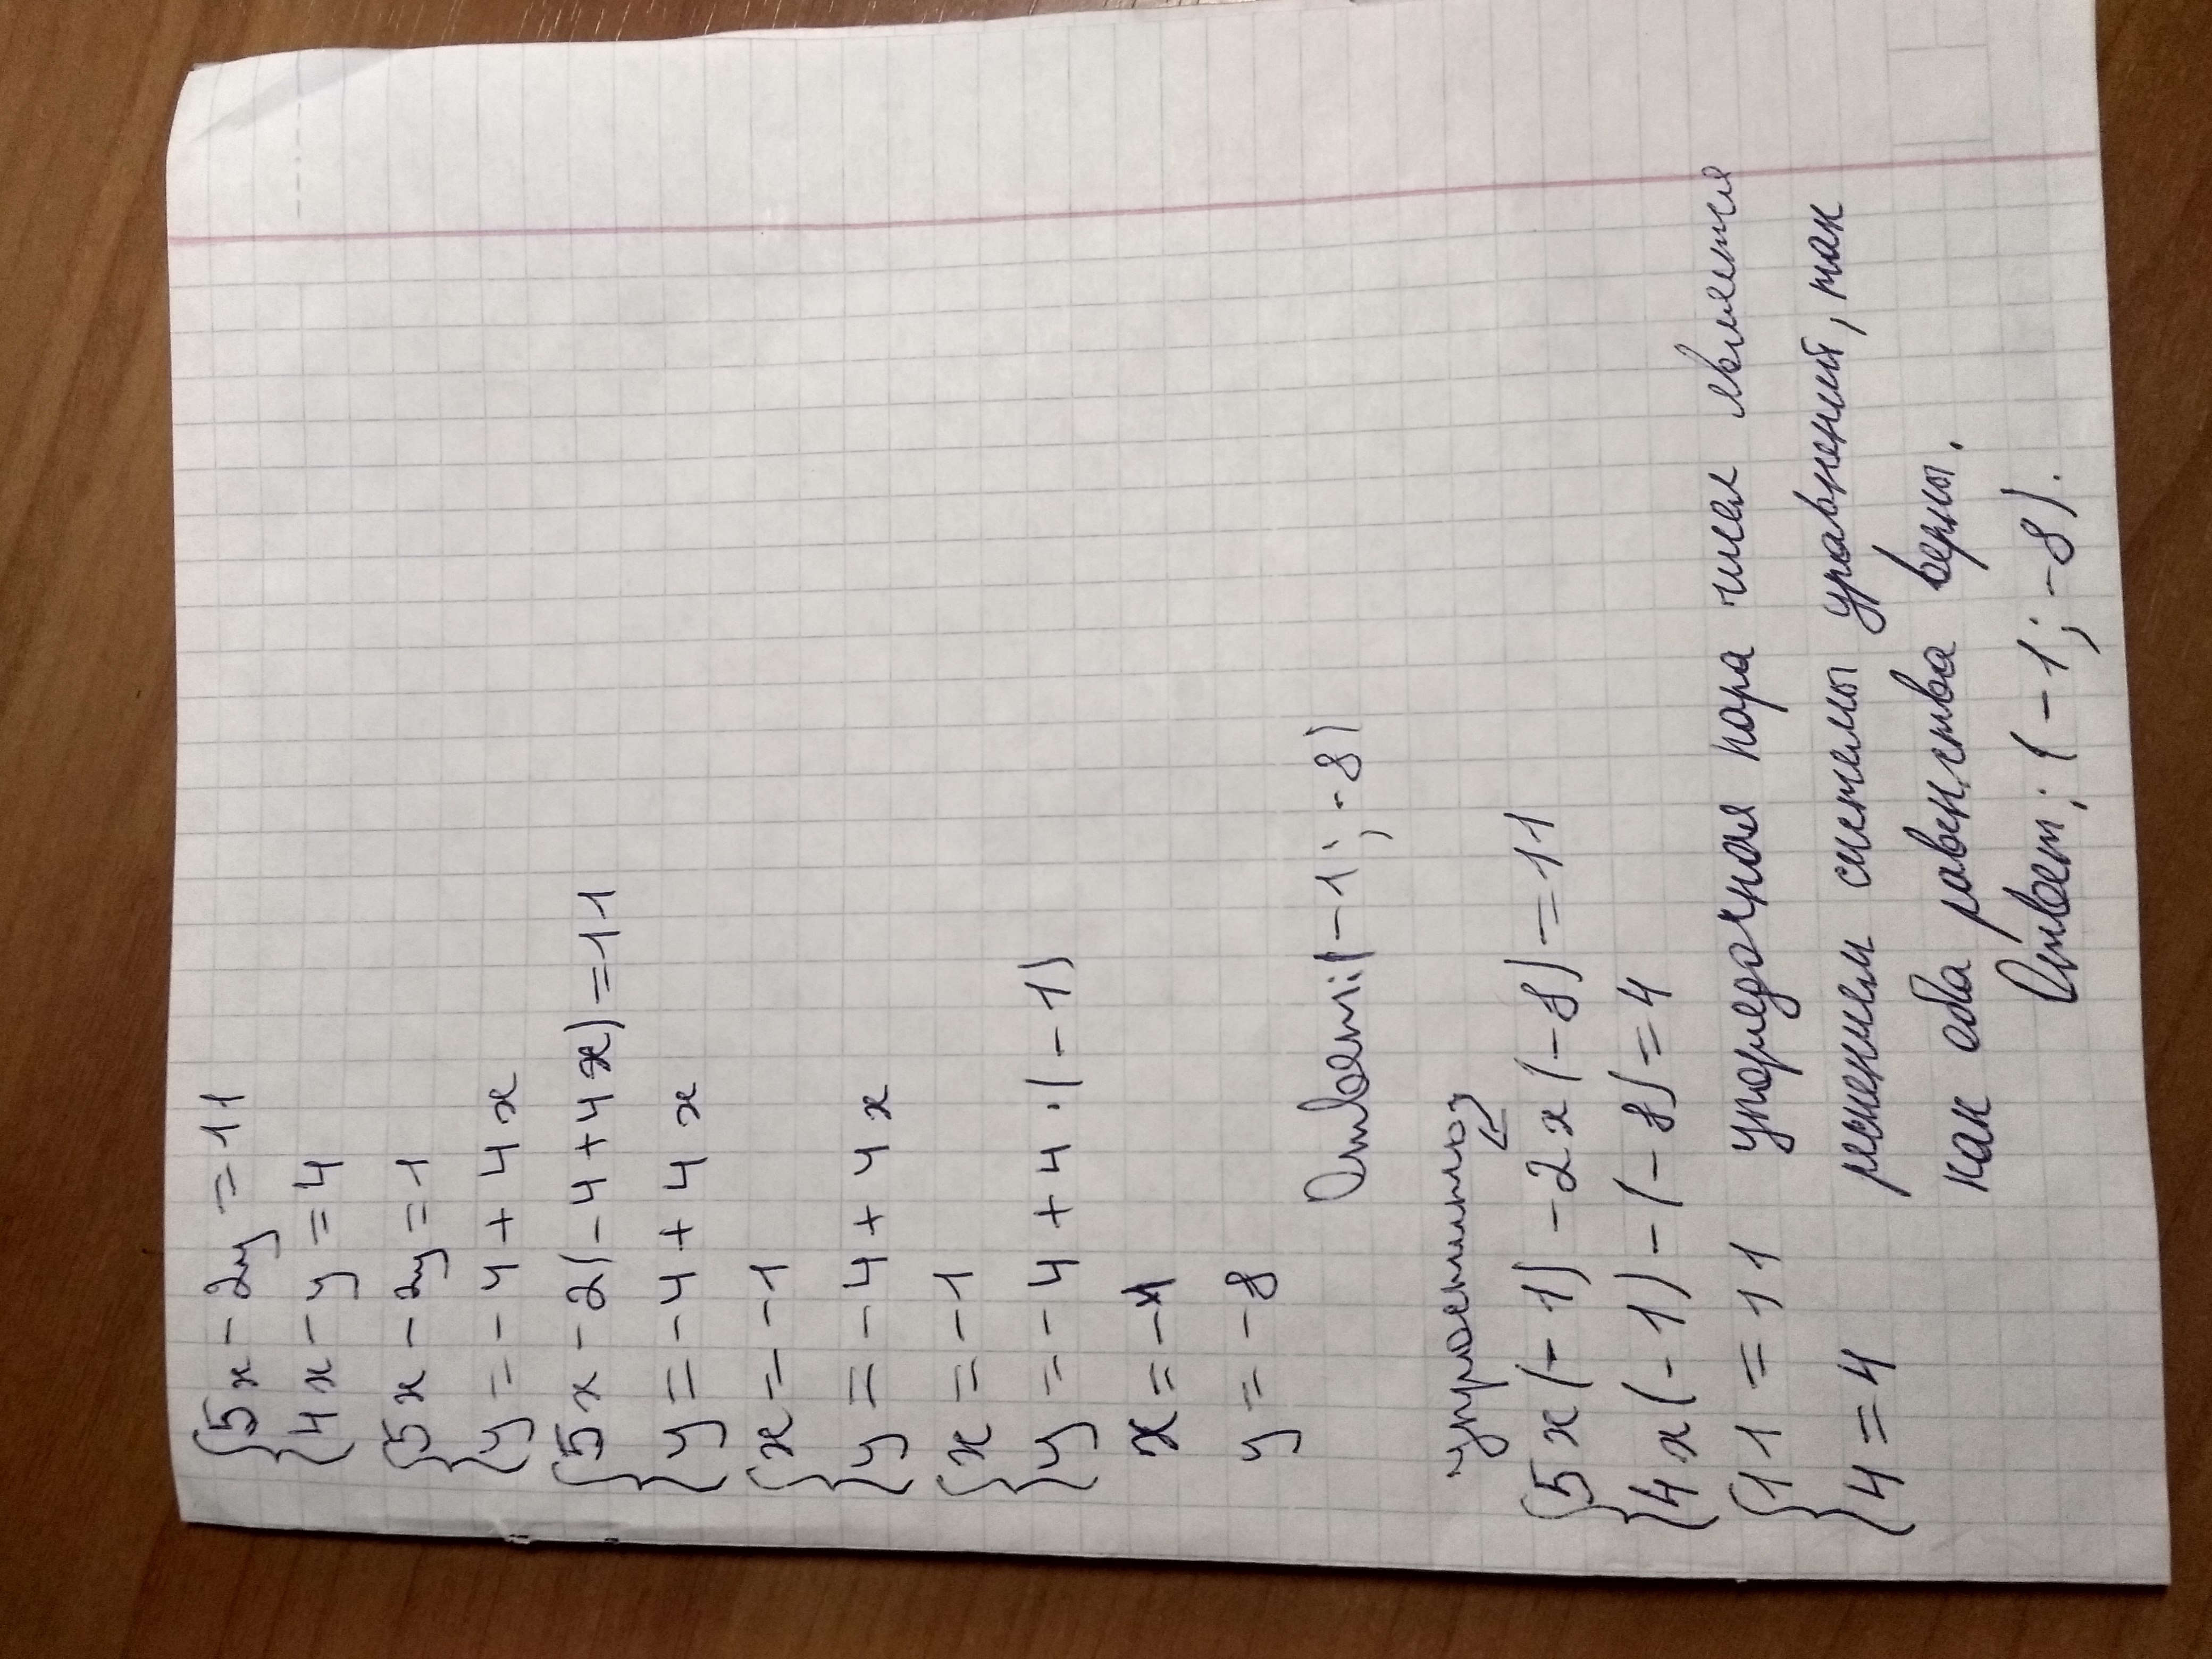 {5x-2y=11
{4x-y=4
{5x-2y=1
{y=-4+4x
{5x-2(-4+4x)=11
{y=-4+4x
{x=-1
{y=-4+4x
{x=-1
{y=-4+4·(-1)
x=-1
y=-8
Ответ:(-1;-8)
упростить
{5x(-1)-2x(-8)=11
{4x(-1)-(-8)=4
{11=11 упорядочная пара чисел является
{4=4 решением системы уравнений, так
как оба равенства верны.
Ответ: (-1; -8).